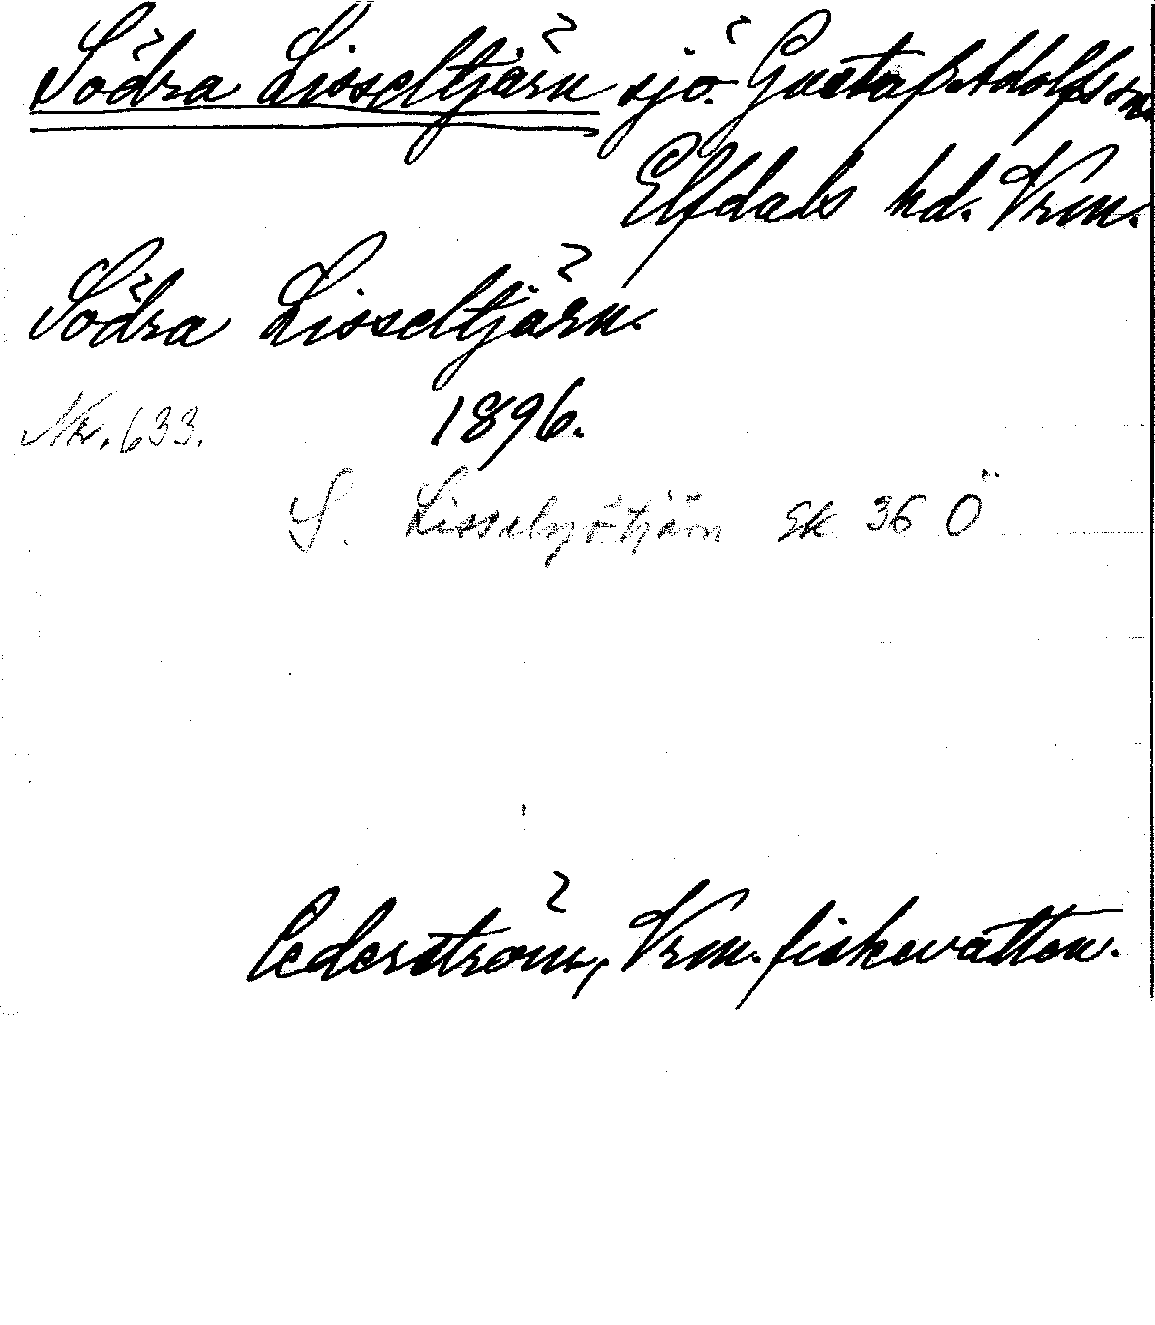 Södra Lisseltjärn sjö. Gustaf Adolfs sn.
Elfdals hd. Vrm.
Södra Lisseltjärn.
Nr. 633. 1896.
S. Lisselsjötjärn Ek 36 Ö
Cederström, Vrm. fiskevatten.